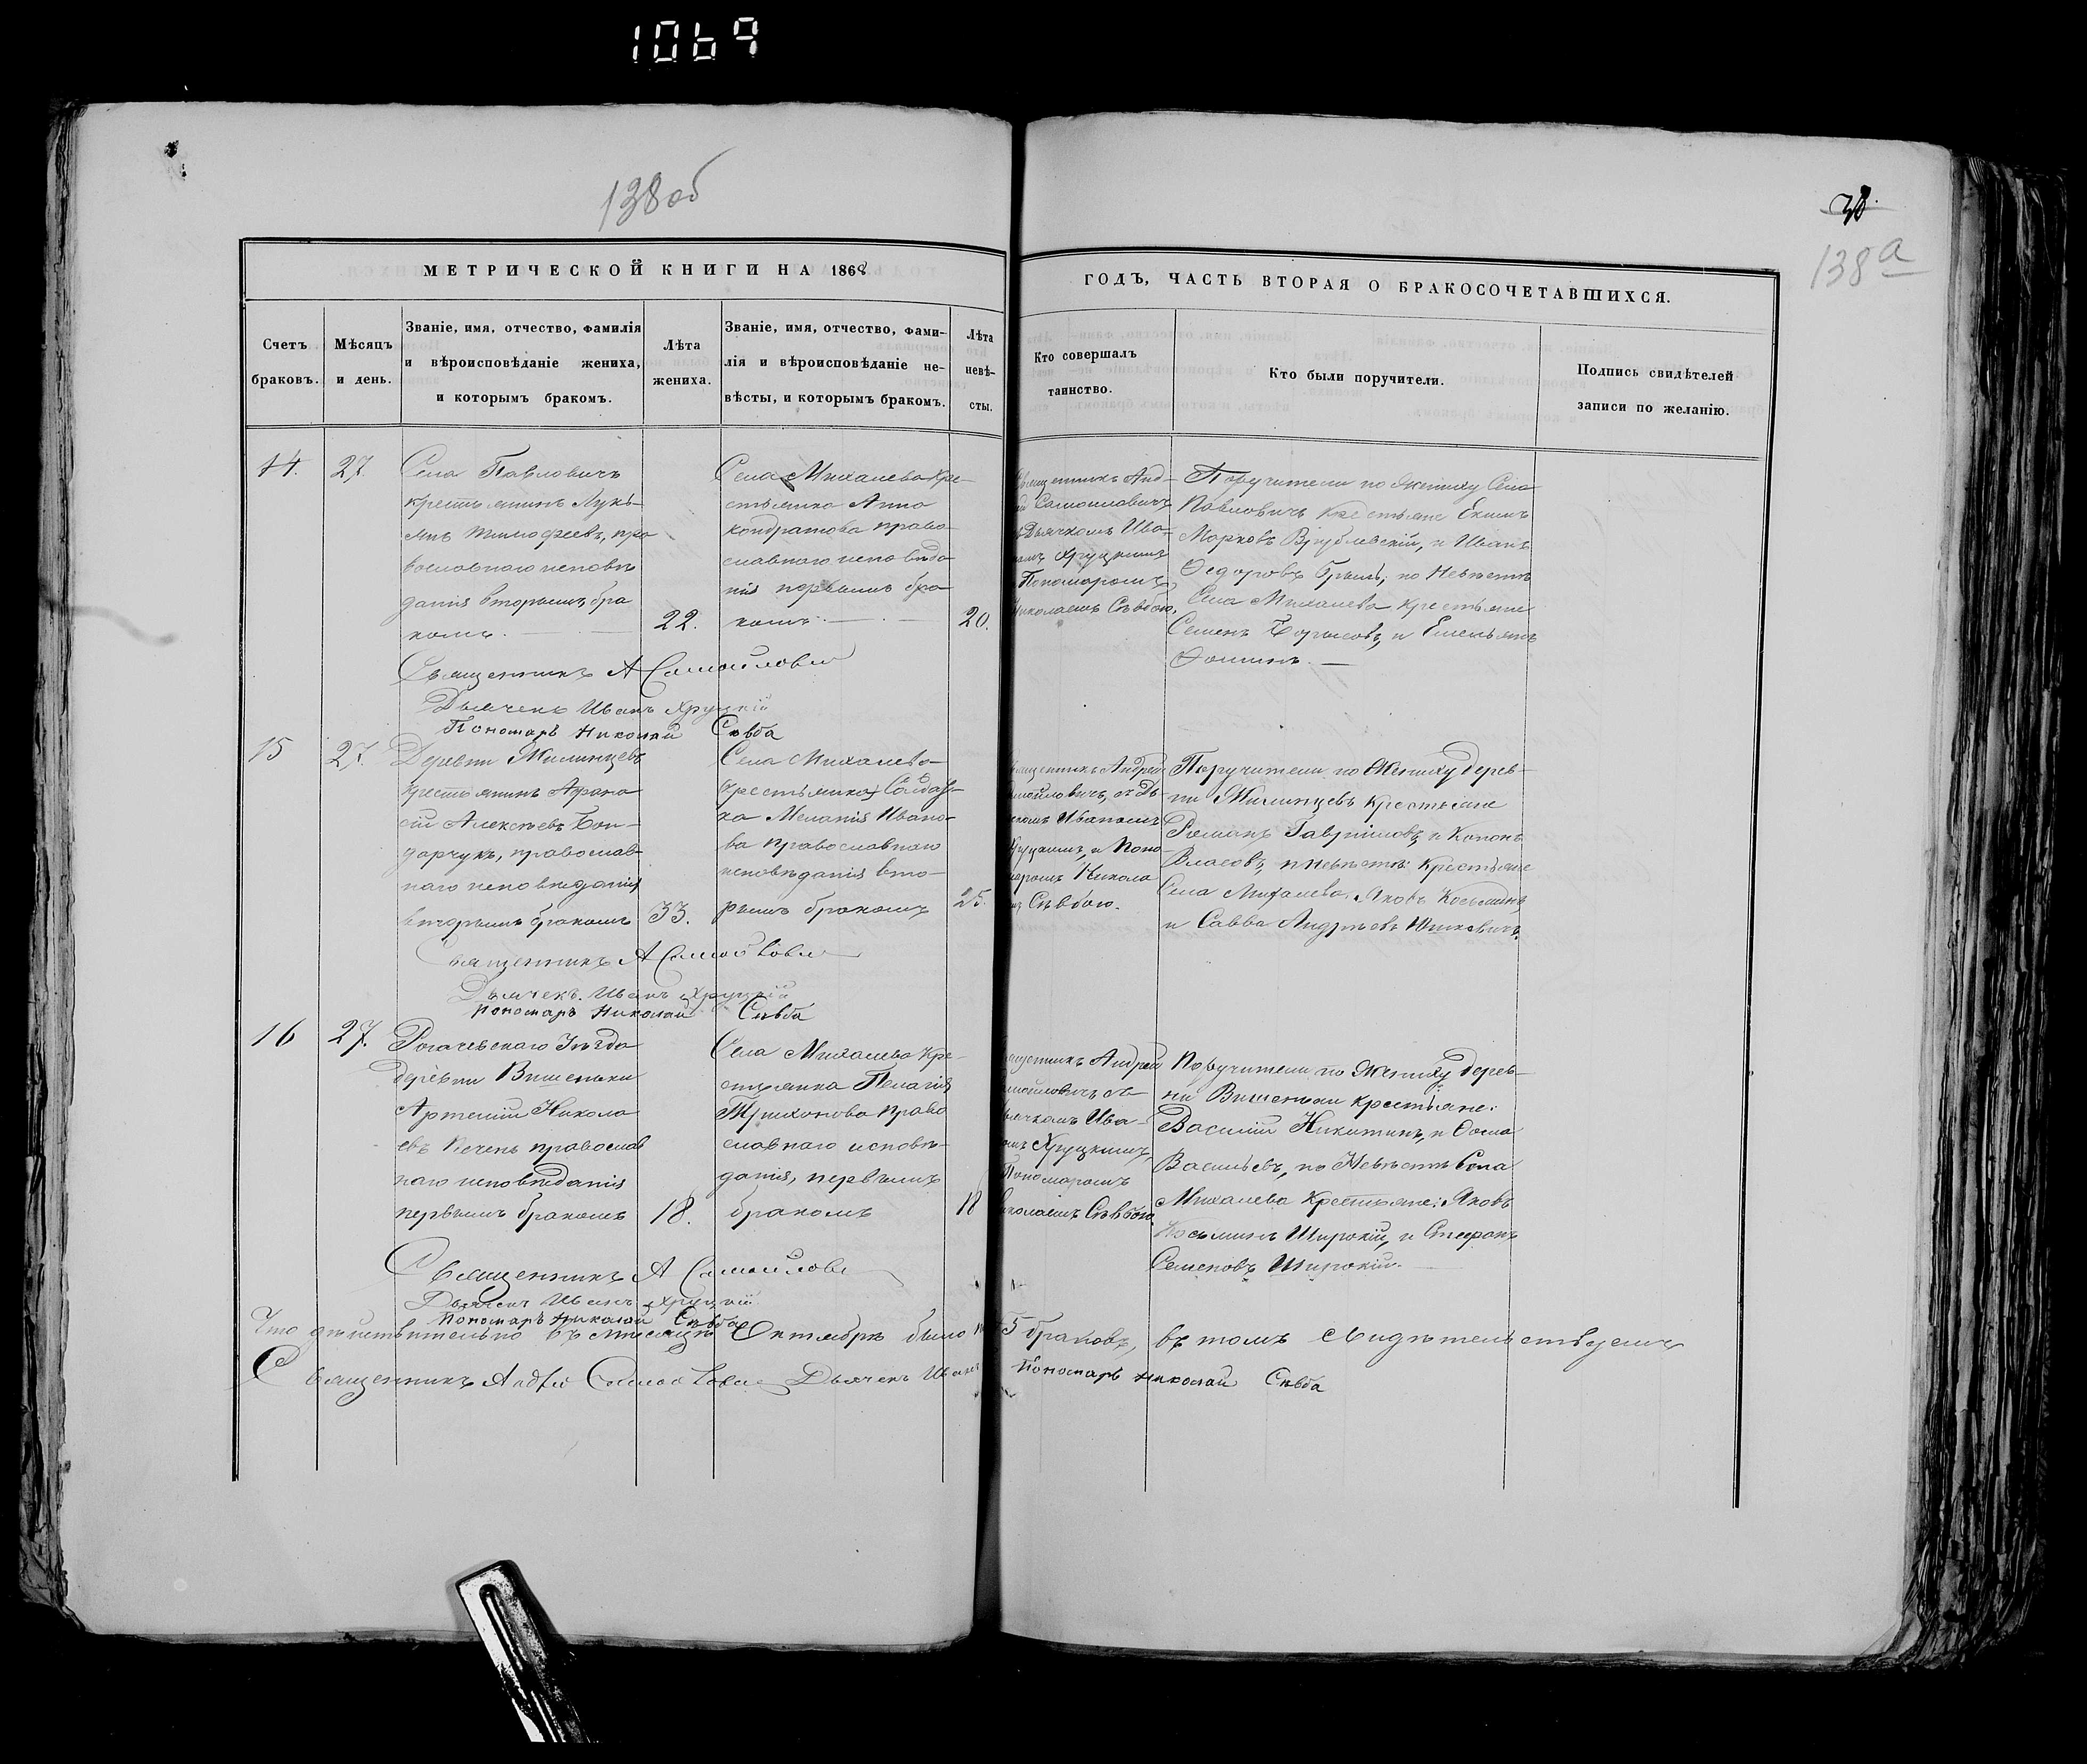 1069
138об
38.
138а
МЕТРИЧЕСКОЙ КНИГИ НА 1868
ГОДЪ, ЧАСТЬ ВТОРАЯ О БРАКОСОЧЕТАВШИХСЯ.
Счетъ браковъ.
Мѣсяцъ и день.
Званіе, имя, отчество, фамилія
и вѣроисповѣданіе жениха,
и которымъ бракомъ.
Лѣта жениха.
Званіе, имя, отчество, фами-
лія и вѣроисповѣданіе не-
вѣсты, и которымъ бракомъ.
Лѣта невѣ-
сты.
Кто совершалъ
таинство.
Кто были поручители.
Подпись свидѣтелей
записи по желанію.
14.
27
Села Павловичъ
крестьянинъ Лукь-
янъ Тимофеевъ, пра
вославнаго исповѣ
данія вторымъ бра
комъ.
22.
Села Михалева кре-
стьянка Анна
Кондратова право-
славнаго исповѣда-
нія первымъ бра-
комъ.
20.
Священникъ Анд-
рей Самойловичъ
съ Дьячкомъ Ива-
номъ Хруцкимъ
Пономаромъ
Николаемъ Сѣвбою.
Поручители по жениху Села
Павловичъ крестьяне Екимъ
Марковъ Врублевскій, и Иванъ
Федоровъ; по невѣсте
Села Михалева крестьяне
Семенъ Борисовъ, и Емельянъ
Фоминъ.
Священникъ А Самойлович
Дьячекъ Иванъ Хруцкій
Пономаръ Николай Сѣвба
15
27.
Деревни Милинцевъ
крестьянинъ Афана
сій Алексѣевъ Бон-
дарчукъ, православ-
наго исповѣданія
вторымъ бракомъ
33.
Села Михалева
крестьянка Солдат-
ка Меланія Ивано-
ва православнаго
исповѣданія вто-
рымъ бракомъ
25.
Священникъ Андрей
Самойловичъ, съ Дья-
чкомъ Иваномъ
Хруцкимъ, и Поно-
маромъ Никола
емъ Сѣвбою.
Поручители по жениху дерев-
ни Милинцевъ крестьяне
Романъ Гавриловъ, и Кононъ
Власовъ, и невѣсте: крестьяне
Села Михалева, Яковъ Косьминъ,
и Савва Андреевъ
Священникъ А Самойлович
Дьячекъ Иванъ Хруцкій
Пономаръ Николай Сѣвба
16
27.
Рогачевскаго Уѣзда
деревни Вишеньки
Артемій Никола
евъ Печень православ
наго исповѣданія
первымъ бракомъ
18.
Села Михалева кре-
стьянка Пелагія
Трихонова право
славнаго исповѣ-
данія, первымъ
бракомъ
18
Священникъ Андрей
Самойловичъ съ
Дьячкомъ Ива-
номъ Хруцкимъ,
Пономаромъ
Николаемъ Сѣвбою
Поручители по жениху дерев-
ни Вишеньки крестьяне:
Василій Никитинъ, и Фома
Васильевъ, по Невѣсте Села
Михалева крестьяне: Яковъ
Косьминъ Широкій, и Стефанъ
Семеновъ Широкій.
Священникъ А Самойлович
Дьячекъ Иванъ Хруцкій
Пономаръ Николай Сѣвба
Что дѣйствительно въ мѣсяцѣ Октябрѣ было 5 браковъ, въ томъ свидѣтельствуемъ
Священникъ Андрей Самойлович Дьячекъ Иванъ Пономаръ Николай Сѣвба